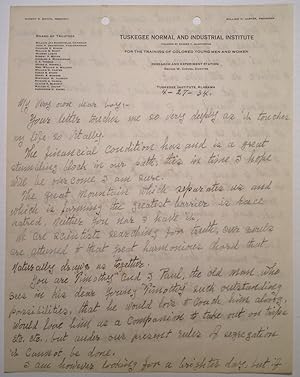 ROBERT R. MOTON, PRINCIPAL
WILLIAM H. CARTER, TREASURER
BOARD OF TRUSTEES
TUSKEGEE NORMAL AND INDUSTRIAL INSTITUTE
FOUNDED BY BOOKER T. WASHINGTON
FOR THE TRAINING OF COLORED YOUNG MEN AND WOMEN
RESEARCH AND EXPERIMENT STATION
GEORGE W. CARVER, DIRECTOR
TUSKEGEE INSTITUTE, ALABAMA
4-27-34.
My very own dear boy:-
Your letter touches me so very deeply as it touches
my life so vitally.
The financial condition has and is a great
stumbling block in our path, this in time I hope
will be overcome I am sure.
The great Mountain which separates us and
which is forming the greatest barrier is race
hatred, neither you nor I have it.
We are scientists searching for truth, our souls
are attuned to that great harmonious chord that
naturally draws us together.
You are Timothy and I Paul, the old man who
sees in his dear young Timothy such outstanding
possibilities, that he would love to coach him along,
would love him as a companion to take out on trips
etc. etc. but under our present rules of segregation
it cannot be done.
I am however looking for a brighter day, but if